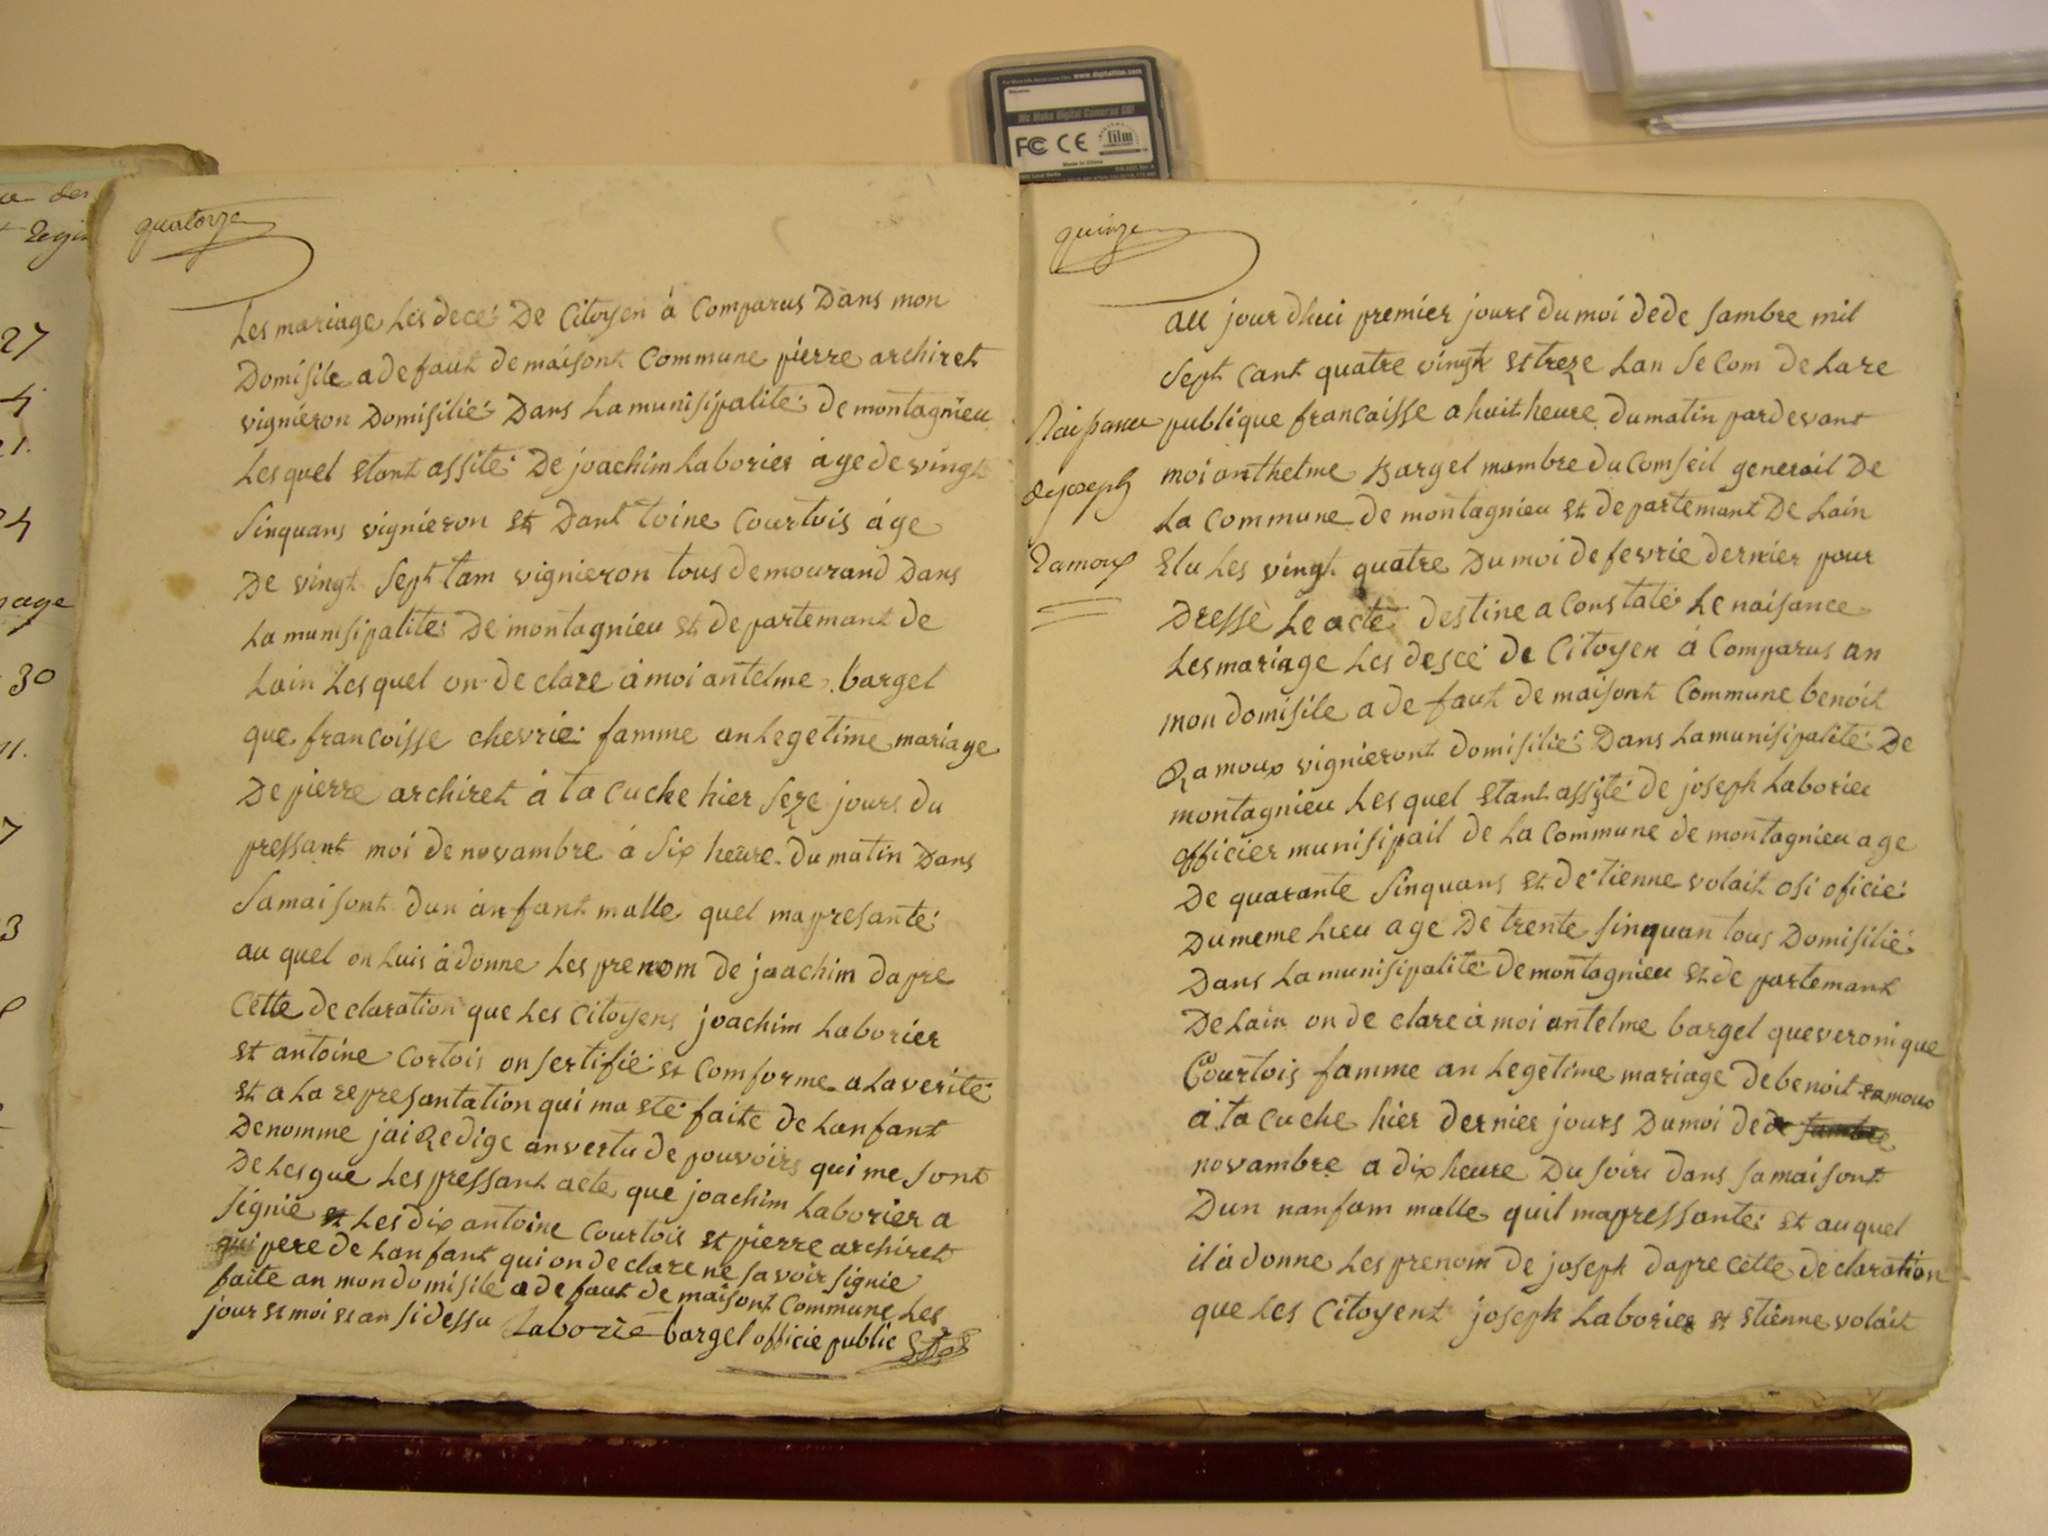 quatorze
Les mariage Les decé De Citoyen á Comparus Dans mon
Domisile a defaut de maisont Commune pierre archiret
vignieron Domisilié Dans La munisipalité de montagnieu
Les quel Etant assité De joachim Laborier áge de vingt
Sinquans vignieron Et Dant toine Courtois áge
De vingt Sept tam vignieron tous demourand Dans
La munisipalite De montagnieu Et departemant de
Lain Les quel on declare á moi antelme bargel
que francoisse chevrié famme an Legetime mariage
De pierre archiret á ta cuche hier Seze jours du
pressant moi de novambre á Six heure du matin Dans
Samaisont dun an fant malle quel ma presanté
au quel on Luis á donne Les prenom de joachim dapre
Cette declaration que Les Citoyens joachim Laborier
Et antoine Cortois on Sertifié Et Comforme a La verité
Et a La represantation qui ma Eté faite de Lanfant
Denomme jai Redige an vertu de pouvoirs qui me Sont
De Les gue Les pressant acte que joachim Laborier a
Signié Et Les dix antoine Courtois Et pierre archiret
qui pere de Lanfant qui on declare ne Savoir Signie
faite an mon domisile a defaut de maisont Commune Les
jour Et moi Et an Si dessu Laborie bargel officie public
quinze
au jour dhui premier jours du moi dede Sambre mil
Sept cant quatre vingt Et treze Lan Se Com de La re
publique francaisse a huit heure du matin pardevant
moi anthelme Bargel mambre du Comseil generail De
La Commune de montagnieu Et departemant De Lain
Elu Les vingt quatre Du moi de fevrie dernier pour
Dresse Le acte destine a Constate Le naisance
Les mariage Les descé de Citoyen á Comparus an
mon domisile a de faut de maisont Commune benoit
Ramoux vignieront domisilié Dans La munisipalité De
montagnieu Les quel Etant assité de joseph Laborier
officier munisipail de La Commune de montagnieu age
De quarante Sinquans Et de tienne volait osi oficié
Du meme Lieu age De trente Sinquan tous Domisilié
Dans La munisipalité De montagnieu Et de partemant
De Lain on de clare á moi antelme bargel que veronique
Courtois famme an Legetime mariage de benoit ramoux
á ta cuche hier dernier jours Du moi de de Sambre
novambre a dix heure Du Soire dans Sa maisont
Dun nanfam malle quil ma pressanté Et au quel
il á donne Les prenom de joseph dapre cette declaration
que Les Citoyent joseph Laborier Et Etienne volait
Naissance
de joseph
Ramoux
27
4
21.
24
30
7
3
www.digitalfilm.com
We Make Digital Cameras GO!
FC CE
film
Made in China